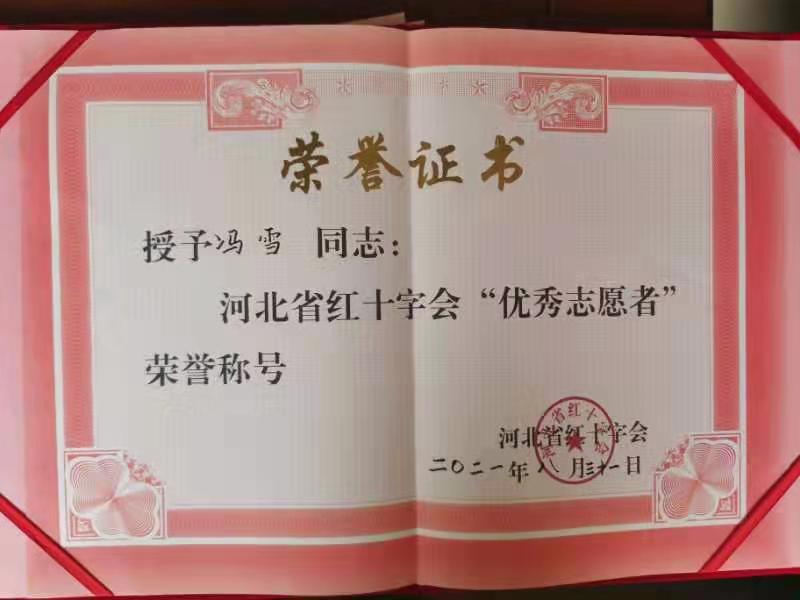 荣誉证书
授予冯雪 同志：
河北省红十字会“优秀志愿者”
荣誉称号
河北省红十字会
二〇二一年八月三十一日
河北省红十字会